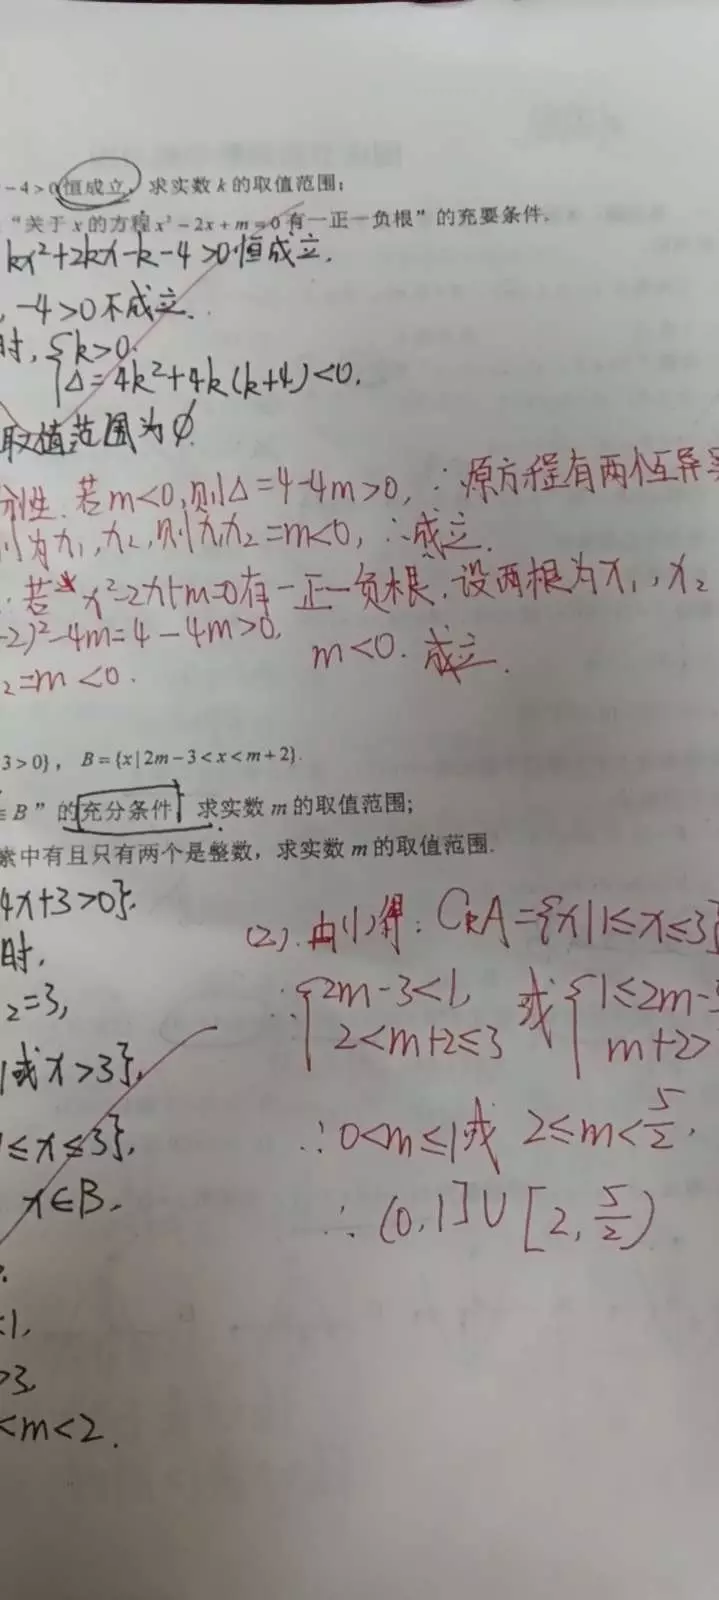 -4>0恒成立，求实数k的取值范围；
“关于x的方程x²-2x+m=0有一正一负根”的充要条件.
kx²+2kx-k-4>0恒成立.
, -4>0不成立.
时, {k>0.
Δ=4k²+4k(k+4)<0.
取值范围为∅.
分性.若m<0,则Δ=4-4m>0, ∴原方程有两个互异
为x₁,x₂,则x₁x₂=m<0, ∴成立.
.若x²-2x+m=0有一正一负根,设两根为x₁,x₂
-2)²-4m=4-4m>0.
₂=m<0.
m<0. 成立.
3>0}，B={x|2m-3<x<m+2}.
B”的充分条件 求实数m的取值范围；
素中有且只有两个是整数，求实数m的取值范围.
4x+3>0}.
时,
₂=3,
或x>3},
≤x≤3},
x∈B.
<1,
>3.
<m<2.
(2).由(1)得: C_RA={x|1≤x≤3}
∴{2m-3<1, 或 {1≤2m-3
2<m+2≤3 m+2>
∴0<m≤1或 2≤m<5/2.
∴(0,1]∪[2,5/2)